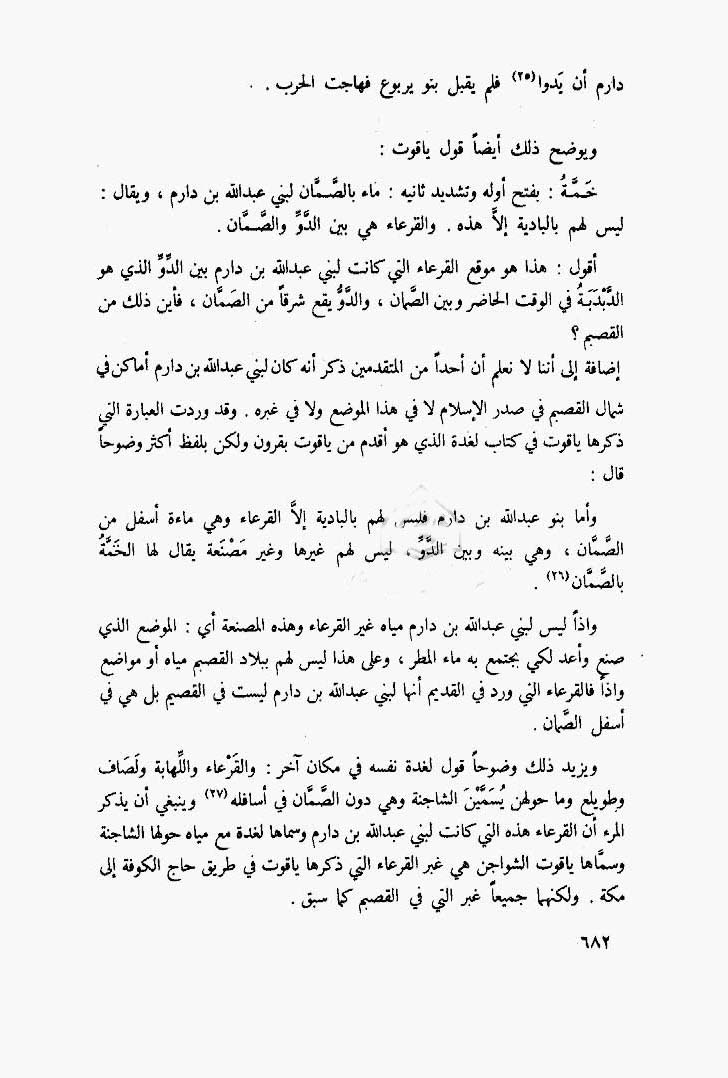 دارم أن يَدوا(٢٥) فلم يقبل بنو يربوع فهاجت الحرب .
ويوضح ذلك أيضاً قول ياقوت :
خَـمَّـةُ : بفتح أوله وتشديد ثانيه : ماء بالصَّـمَّان لبني عبدالله بن دارم ، ويقال :
ليس لهم بالبادية إلاَّ هذه . والقرعاء هي بين الدَّوِّ والصَّـمَّان .
أقول : هذا هو موقع القرعاء التي كانت لبني عبدالله بن دارم بين الدِّوِّ الذي هو
الدَّبْدَبَـةُ في الوقت الحاضر وبين الصَّمان ، والدَّوُّ يقع شرقاً من الصَمَّان ، فأين ذلك من
القصيم ؟
إضافة إلى أننا لا نعلم أن أحداً من المتقدمين ذكر أنه كان لبني عبدالله بن دارم أماكن في
شمال القصيم في صدر الإسلام لا في هذا الموضع ولا في غيره . وقد وردت العبارة التي
ذكرها ياقوت في كتاب لغدة الذي هو أقدم من ياقوت بقرون ولكن بلفظ أكثر وضوحاً
قال :
وأما بنو عبدالله بن دارم فليس لهم بالبادية إلاَّ القرعاء وهي ماءة أسفل من
الصَّمَّان ، وهي بينه وبين الدَّوِّ ، ليس لهم غيرها وغير مَصْنَعة يقال لها الخَمَّةُ
بالصَّمَّان(٢٦) .
واذاً ليس لبني عبدالله بن دارم مياه غير القرعاء وهذه المصنعة أي : الموضع الذي
صنع وأعد لكي يجتمع به ماء المطر ، وعلى هذا ليس لهم ببلاد القصيم مياه أو مواضع
واذاً فالقرعاء التي ورد في القديم أنها لبني عبدالله بن دارم ليست في القصيم بل هي في
أسفل الصَّمان .
ويزيد ذلك وضوحاً قول لغدة نفسه في مكان آخر : والقَرْعاء واللِّهابة ولَصَاف
وطويلع وما حولهن يُسَمَّيْنَ الشاجنة وهي دون الصَّمان في أسافله(٢٧) وينبغي أن يذكر
المرء أن القرعاء هذه التي كانت لبني عبدالله بن دارم وسماها لغدة مع مياه حولها الشاجنة
وسمَّاها ياقوت الشواجن هي غير القرعاء التي ذكرها ياقوت في طريق حاج الكوفة إلى
مكة . ولكنهما جميعاً غير التي في القصيم كما سبق .
٦٨٢